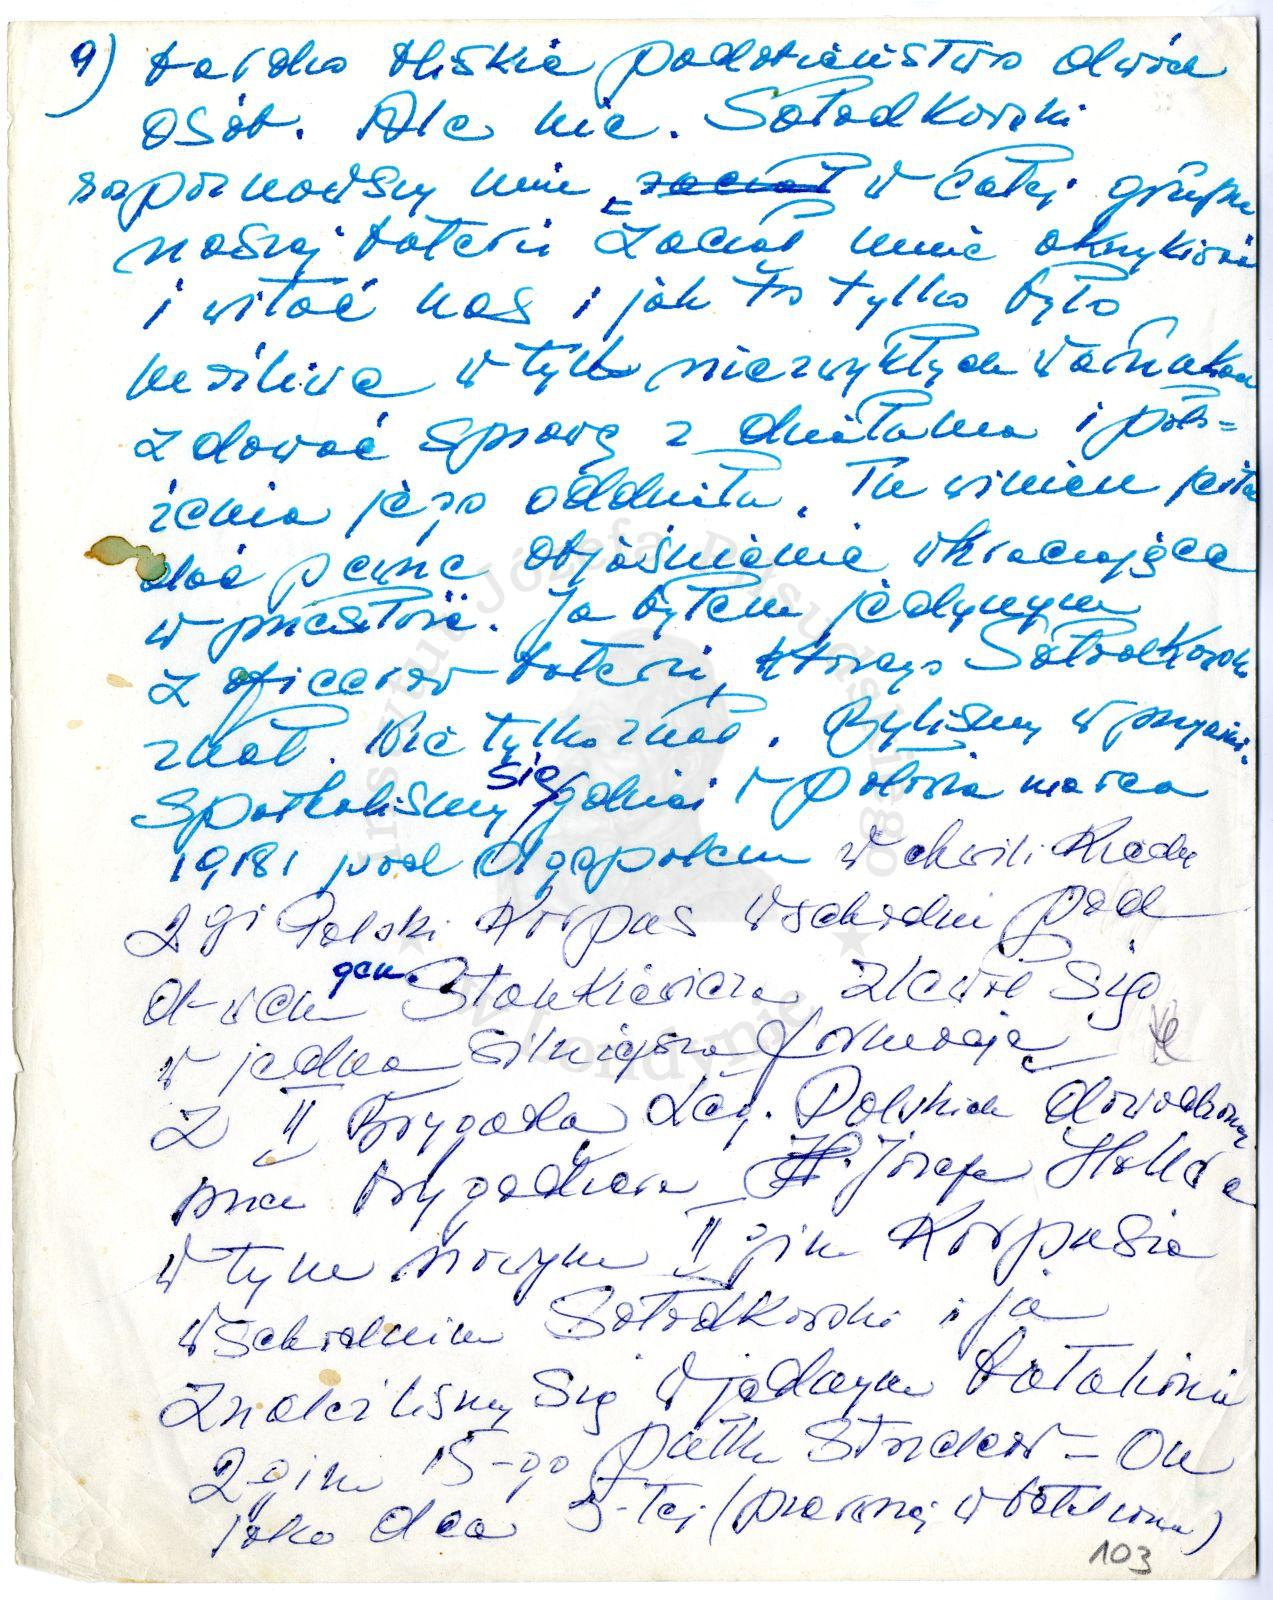 9) bardzo bliskie podobieństwo dwóch
osób. Ale nie. Sołodkowski
rozpoznawszy mnie w całej grupie
naszej baterii zaczął mnie okrzykiwać
i witać nas i jak to tylko było
możliwe w tych niezwykłych warunkach
zdawać sprawę z działania i poło=
żenia jego oddziału. Tu winien jestem
dać pewne objaśnienie wkraczające
w przeszłość. Ja byłem jedynym
z oficerów baterii, którego Sołodkowski
znał. Nie tylko znał. Byliśmy w przyjaźni.
Spotkaliśmy się gdzieś w połowie marca
1918 pod w chwili kiedy
2gi Polski Korpus Wschodni pod
d-wem gen. Stankiewicza zlewał się
w jedną silniejszą formację
z II Brygadą Leg. Polskich dowodzoną
przez brygadiera Józefa Hallera
W tym nowym II gim Korpusie
Wschodnim Sołodkowski i ja
znaleźliśmy się w jednym batalionie
2-gim 15-go pułku Strzelców - On
jako dca 5-tej (pierwszej w batalionie)
103
Instytut Józefa Piłsudskiego
w Londynie